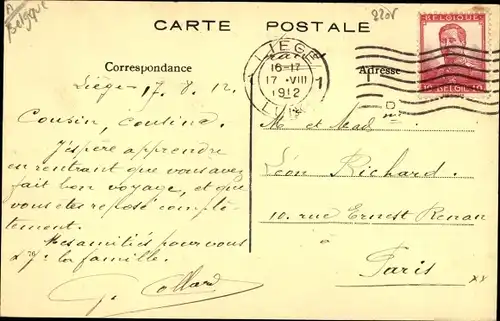 Belgique
2208
CARTE POSTALE
LIEGE
16-17
17 VIII
1912
1 1
BELGIQUE
10 BELGIE 10
Correspondance
Adresse
Liège 17. 8. 12.
Cousin, cousine,
J'espère apprendre
en rentrant que vous avez
fait bon voyage, et que
vous êtes reposé complè-
tement.
Mes amitiés pour vous
la famille.
G. Collard
M et Mad
Léon Richard.
10. rue Ernest Renan
Paris